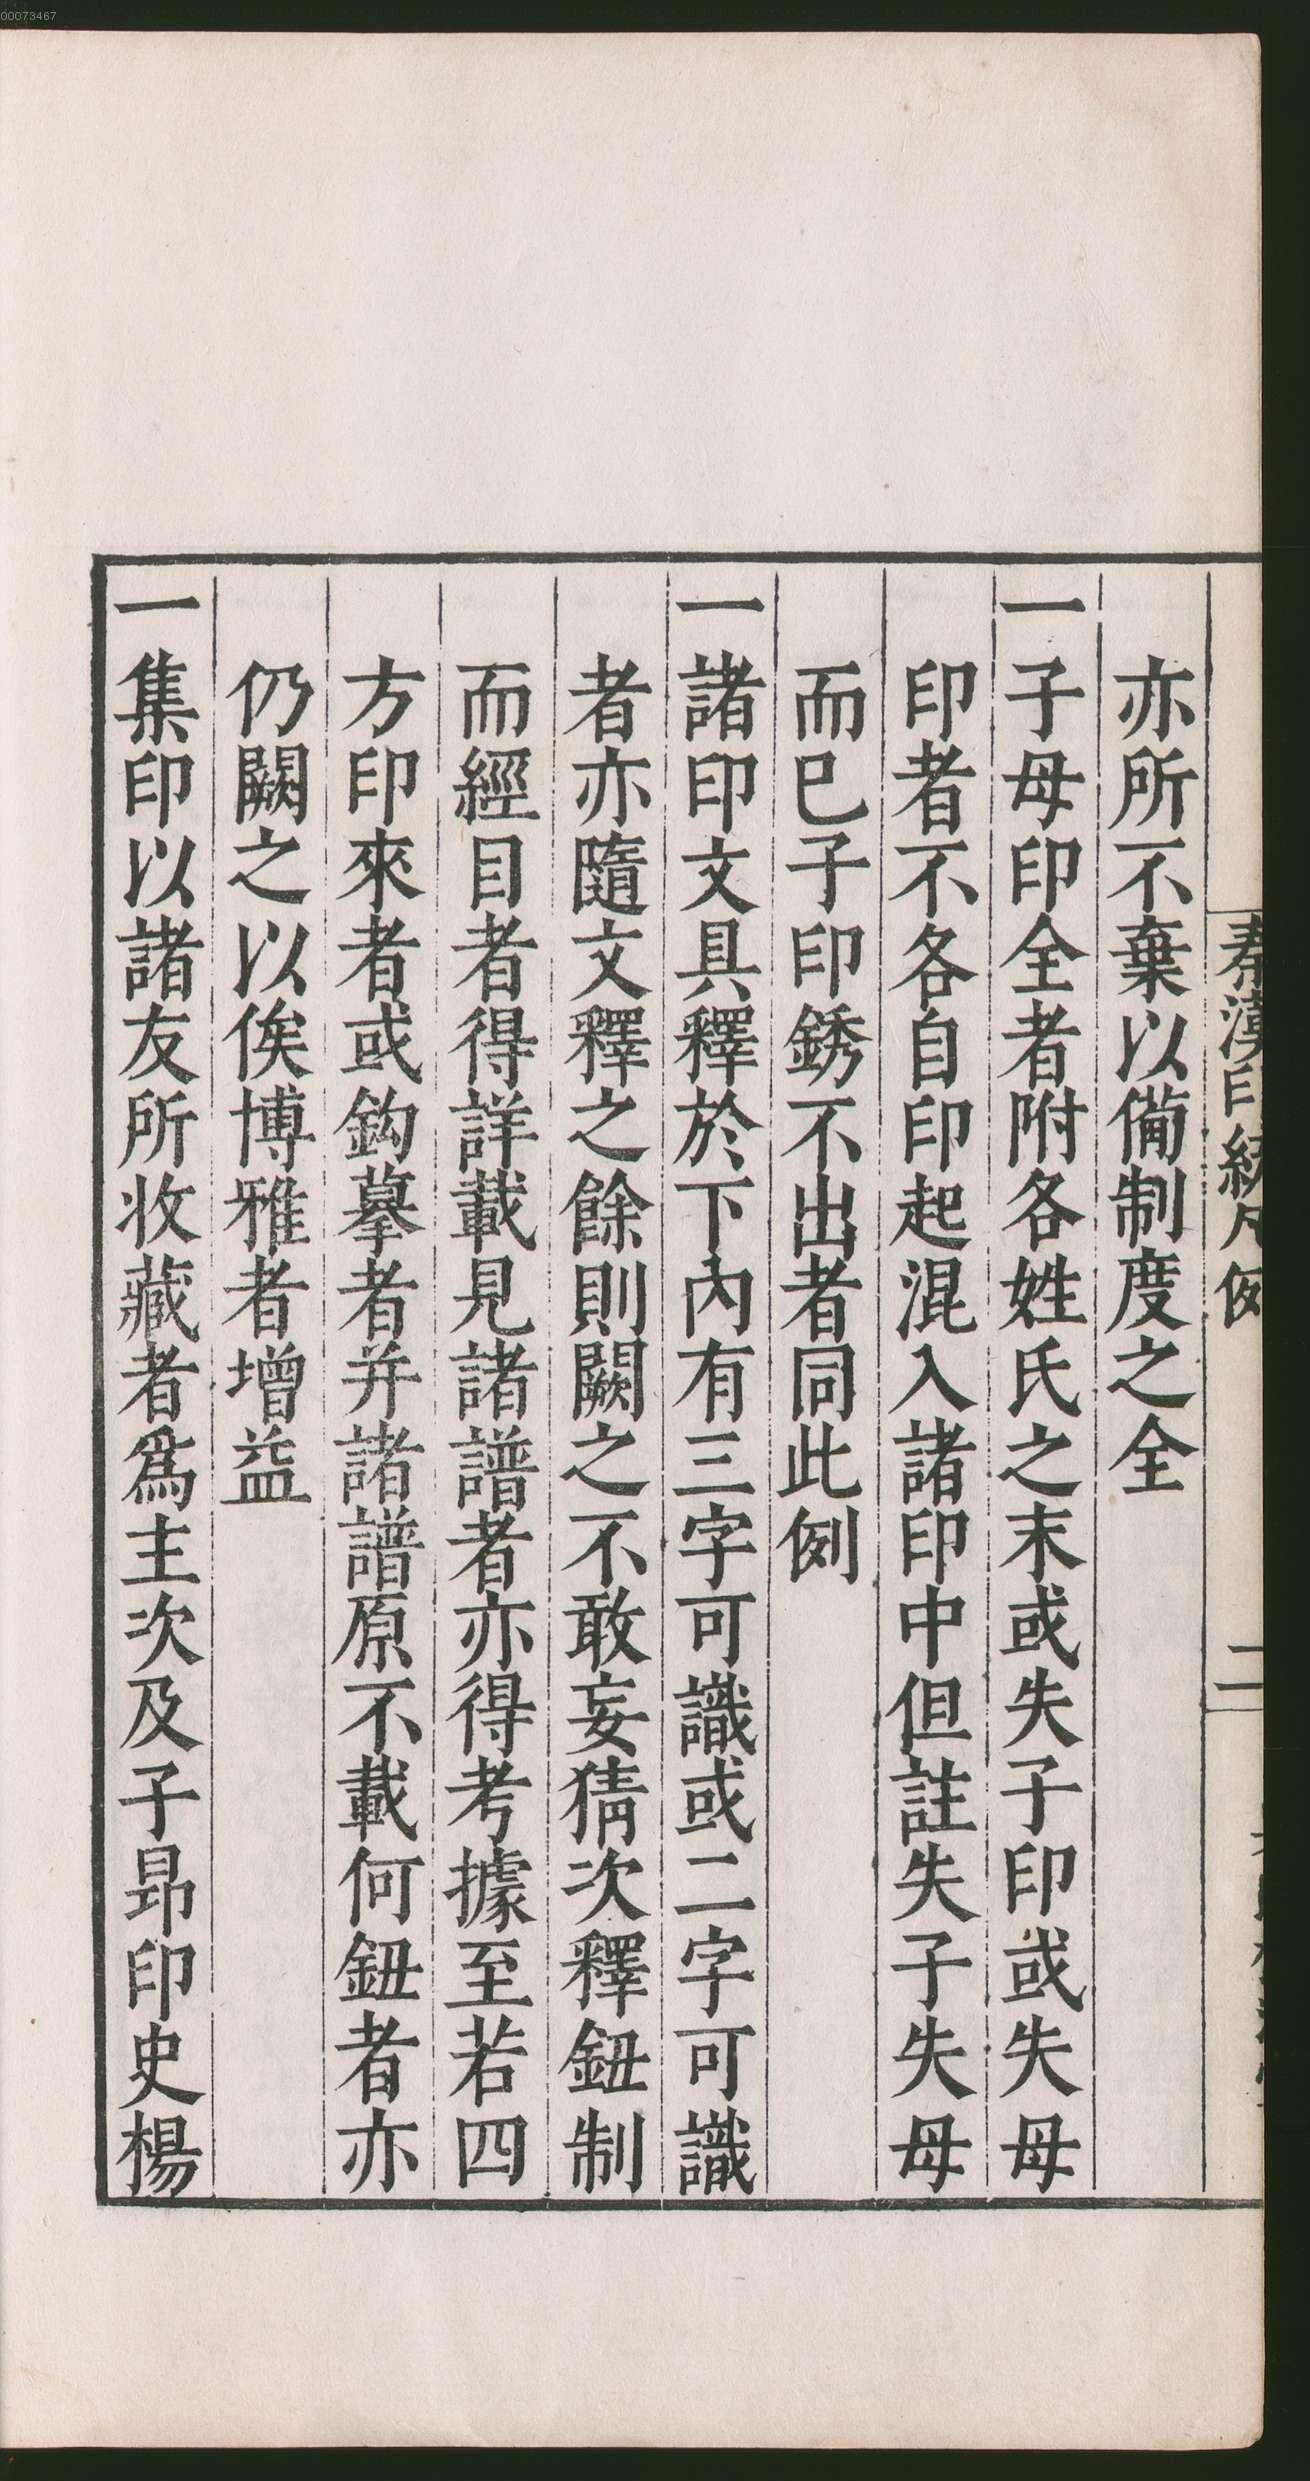 00073467
秦漢印統凡例
二
亦所不棄以備制度之全
一子母印全者附各姓氏之末或失子印或失母
印者不各自印起混入諸印中但註失子失母
而已子印銹不出者同此例
一諸印文具釋於下內有三字可識或二字可識
者亦隨文釋之餘則闕之不敢妄猜次釋鈕制
而經目者得詳載見諸譜者亦得考據至若四
方印來者或鈎摹者并諸譜原不載何鈕者亦
仍闕之以俟博雅者增益
一集印以諸友所收藏者爲主次及子昻印史楊